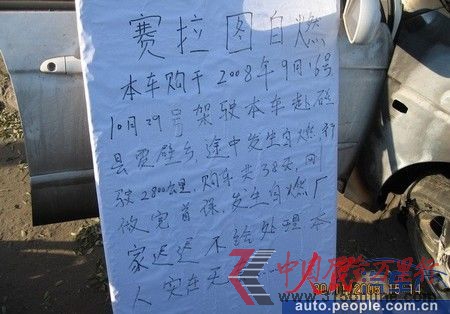 赛拉图自燃
本车购于2008年9月16号
10月29号驾驶本车赴磁
县贾壁乡,途中发生自燃行
驶2800公里,购车共38天,刚
做完首保,发生自燃厂
家迟迟不给处理本
人实在无
15:14
auto.people.com.cn